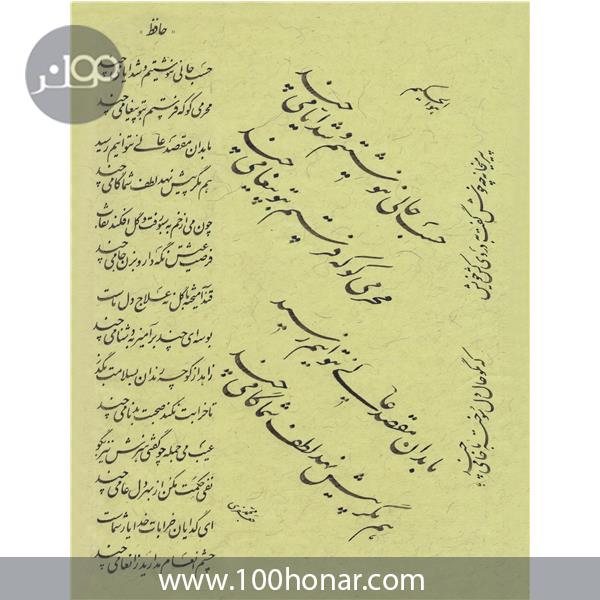 پیر میخانه چه خوش گفت به دردی کش خویش
که مگو حال دل سوخته با خامی چند
حسب حالی ننوشتیم و شد ایامی چند
محرمی کو که فرستیم بتو پیغامی چند
ما بدان مقصد عالی نتوانیم رسید
هم مگر پیش نهد لطف شما گامی چند
"حافظ"
حسب حالی ننوشتیم و شد ایامی چند
محرمی کو که فرستیم بتو پیغامی چند
ما بدان مقصد عالی نتوانیم رسید
هم مگر پیش نهد لطف شما گامی چند
چون می از خم به سبو رفت و گل افکند نقاب
فرصت عیش نگه دار و بزن جامی چند
قند آمیخته با گل نه علاج دل ماست
بوسه ای چند برآمیز به دشنامی چند
زاهد از کوچه رندان بسلامت بگذر
تا خرابت نکند صحبت بدنامی چند
عیب می جمله چو گفتی هنرش نیز بگو
نفی حکمت مکن از بهر دل عامی چند
ای گدایان خرابات خدا یار شماست
چشم انعام مدارید ز انعامی چند
www.100honar.com